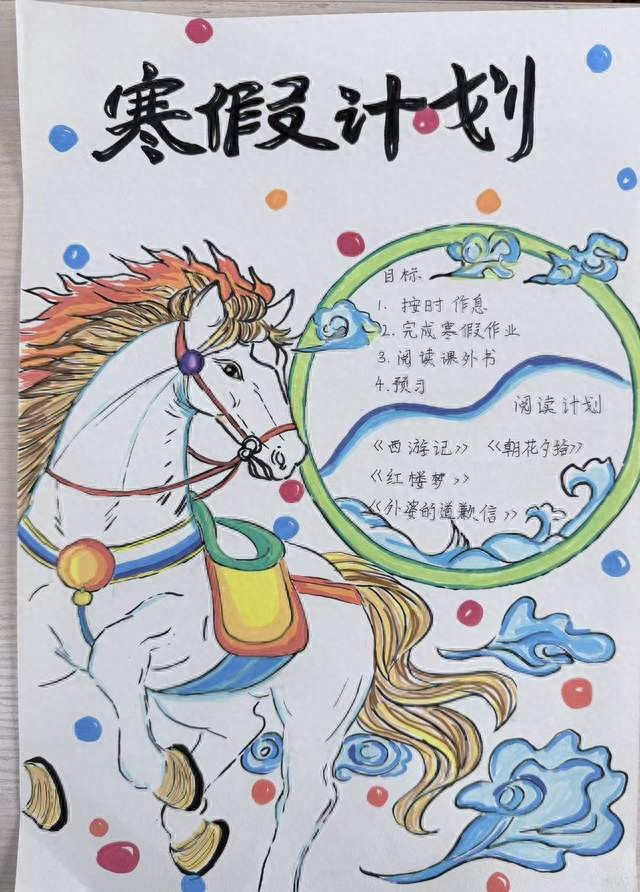 寒假计划
目标
1. 按时作息
2. 完成寒假作业
3. 阅读课外书
4. 预习
阅读计划
《西游记》 《朝花夕拾》
《红楼梦》
《外婆的道歉信》